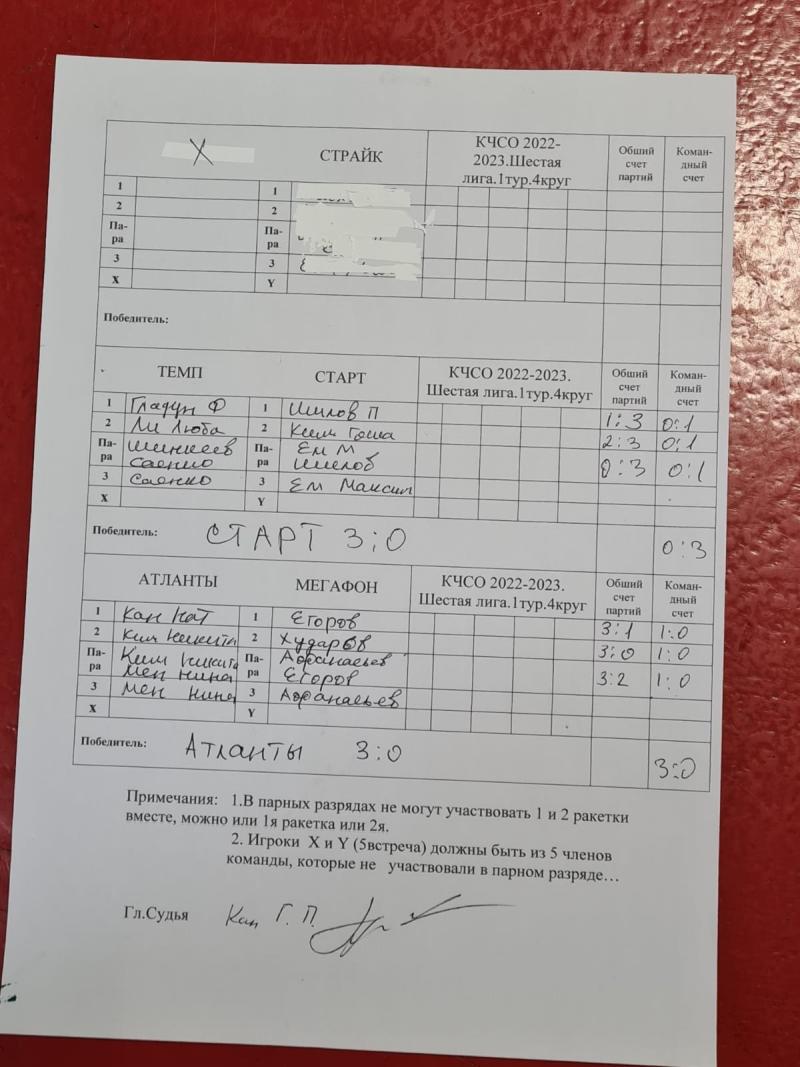 X СТРАЙК КЧСО 2022-2023.Шестая лига.1тур.4круг Обший счет партий Коман-дный счет
1 1
2 2
Па-ра Па-ра
3 3
X Y
Победитель:
ТЕМП СТАРТ КЧСО 2022-2023. Шестая лига.1тур.4круг Обший счет партий Коман-дный счет
1 Гладун Ф 1 Шилов П 1:3 0:1
2 Ли Люба 2 Ким Гоша 2:3 0:1
Па-ра Шинкеев Саенко Па-ра Ем М Шилов 0:3 0:1
3 Саенко 3 Ем Максим
X Y
Победитель: СТАРТ 3:0 0:3
АТЛАНТЫ МЕГАФОН КЧСО 2022-2023. Шестая лига.1тур.4круг Обший счет партий Коман-дный счет
1 Кан Нат 1 Егоров 3:1 1:0
2 Ким Никита 2 Хударов 3:0 1:0
Па-ра Ким Никита Мен Нина Па-ра Афанасьев Егоров 3:2 1:0
3 Мен Нина 3 Афанасьев
X Y
Победитель: Атланты 3:0 3:0
Примечания: 1.В парных разрядах не могут участвовать 1 и 2 ракетки
вместе, можно или 1я ракетка или 2я.
2. Игроки X и Y (5встреча) должны быть из 5 членов
команды, которые не участвовали в парном разряде…
Гл.Судья Кан Г.П.